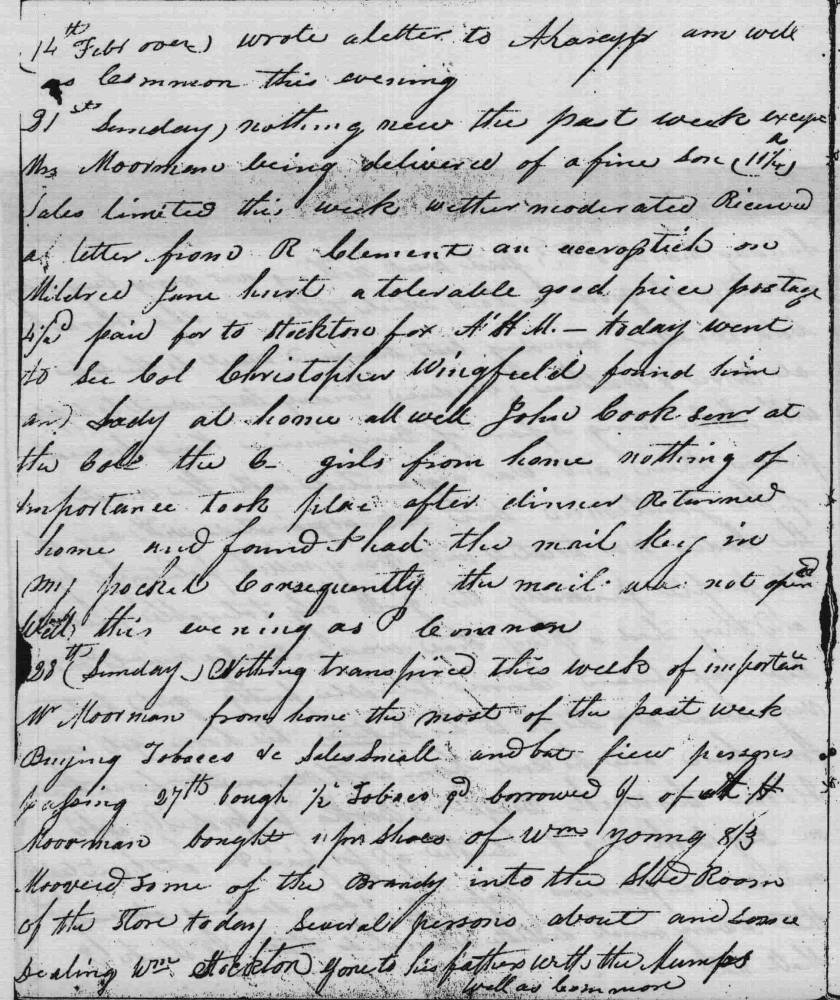 (14th Febr over) wrote a letter to am well
as Common this evening
21st Sunday, nothing new the past week except
Mrs Moorman being delivered of a fine Son (11th)
Sales limited this week wether moderated Received
a letter from R Clement an accroptich on
Mildred Jane hurt a tolerable good piece postage
paid for to Stockton for A H M. — today went
to See Col Christopher Wingfield found him
and Lady at home all well John Cook Senr at
the Cols the C girls from home nothing of
importance took place after dinner Returned
home and found I had the mail Key in
my pocket Consequently the mail was not opened
Well this evening as Common
28th (Sunday) Nothing transpired this week of importan
Mr Moorman from home the most of the past week
Buying Tobacco &c Sales Small and but fiew persons
passing 27th bough ½ Tobaco borrowed of H
Moorman bought 1 pr Shoes of Wm young 8/3
Mooved Some of the Brandy into the Shed Room
of the Store today Several persons about and Some
Dealing Wm Stockton gone to his fathers with the Mumps
well as Common